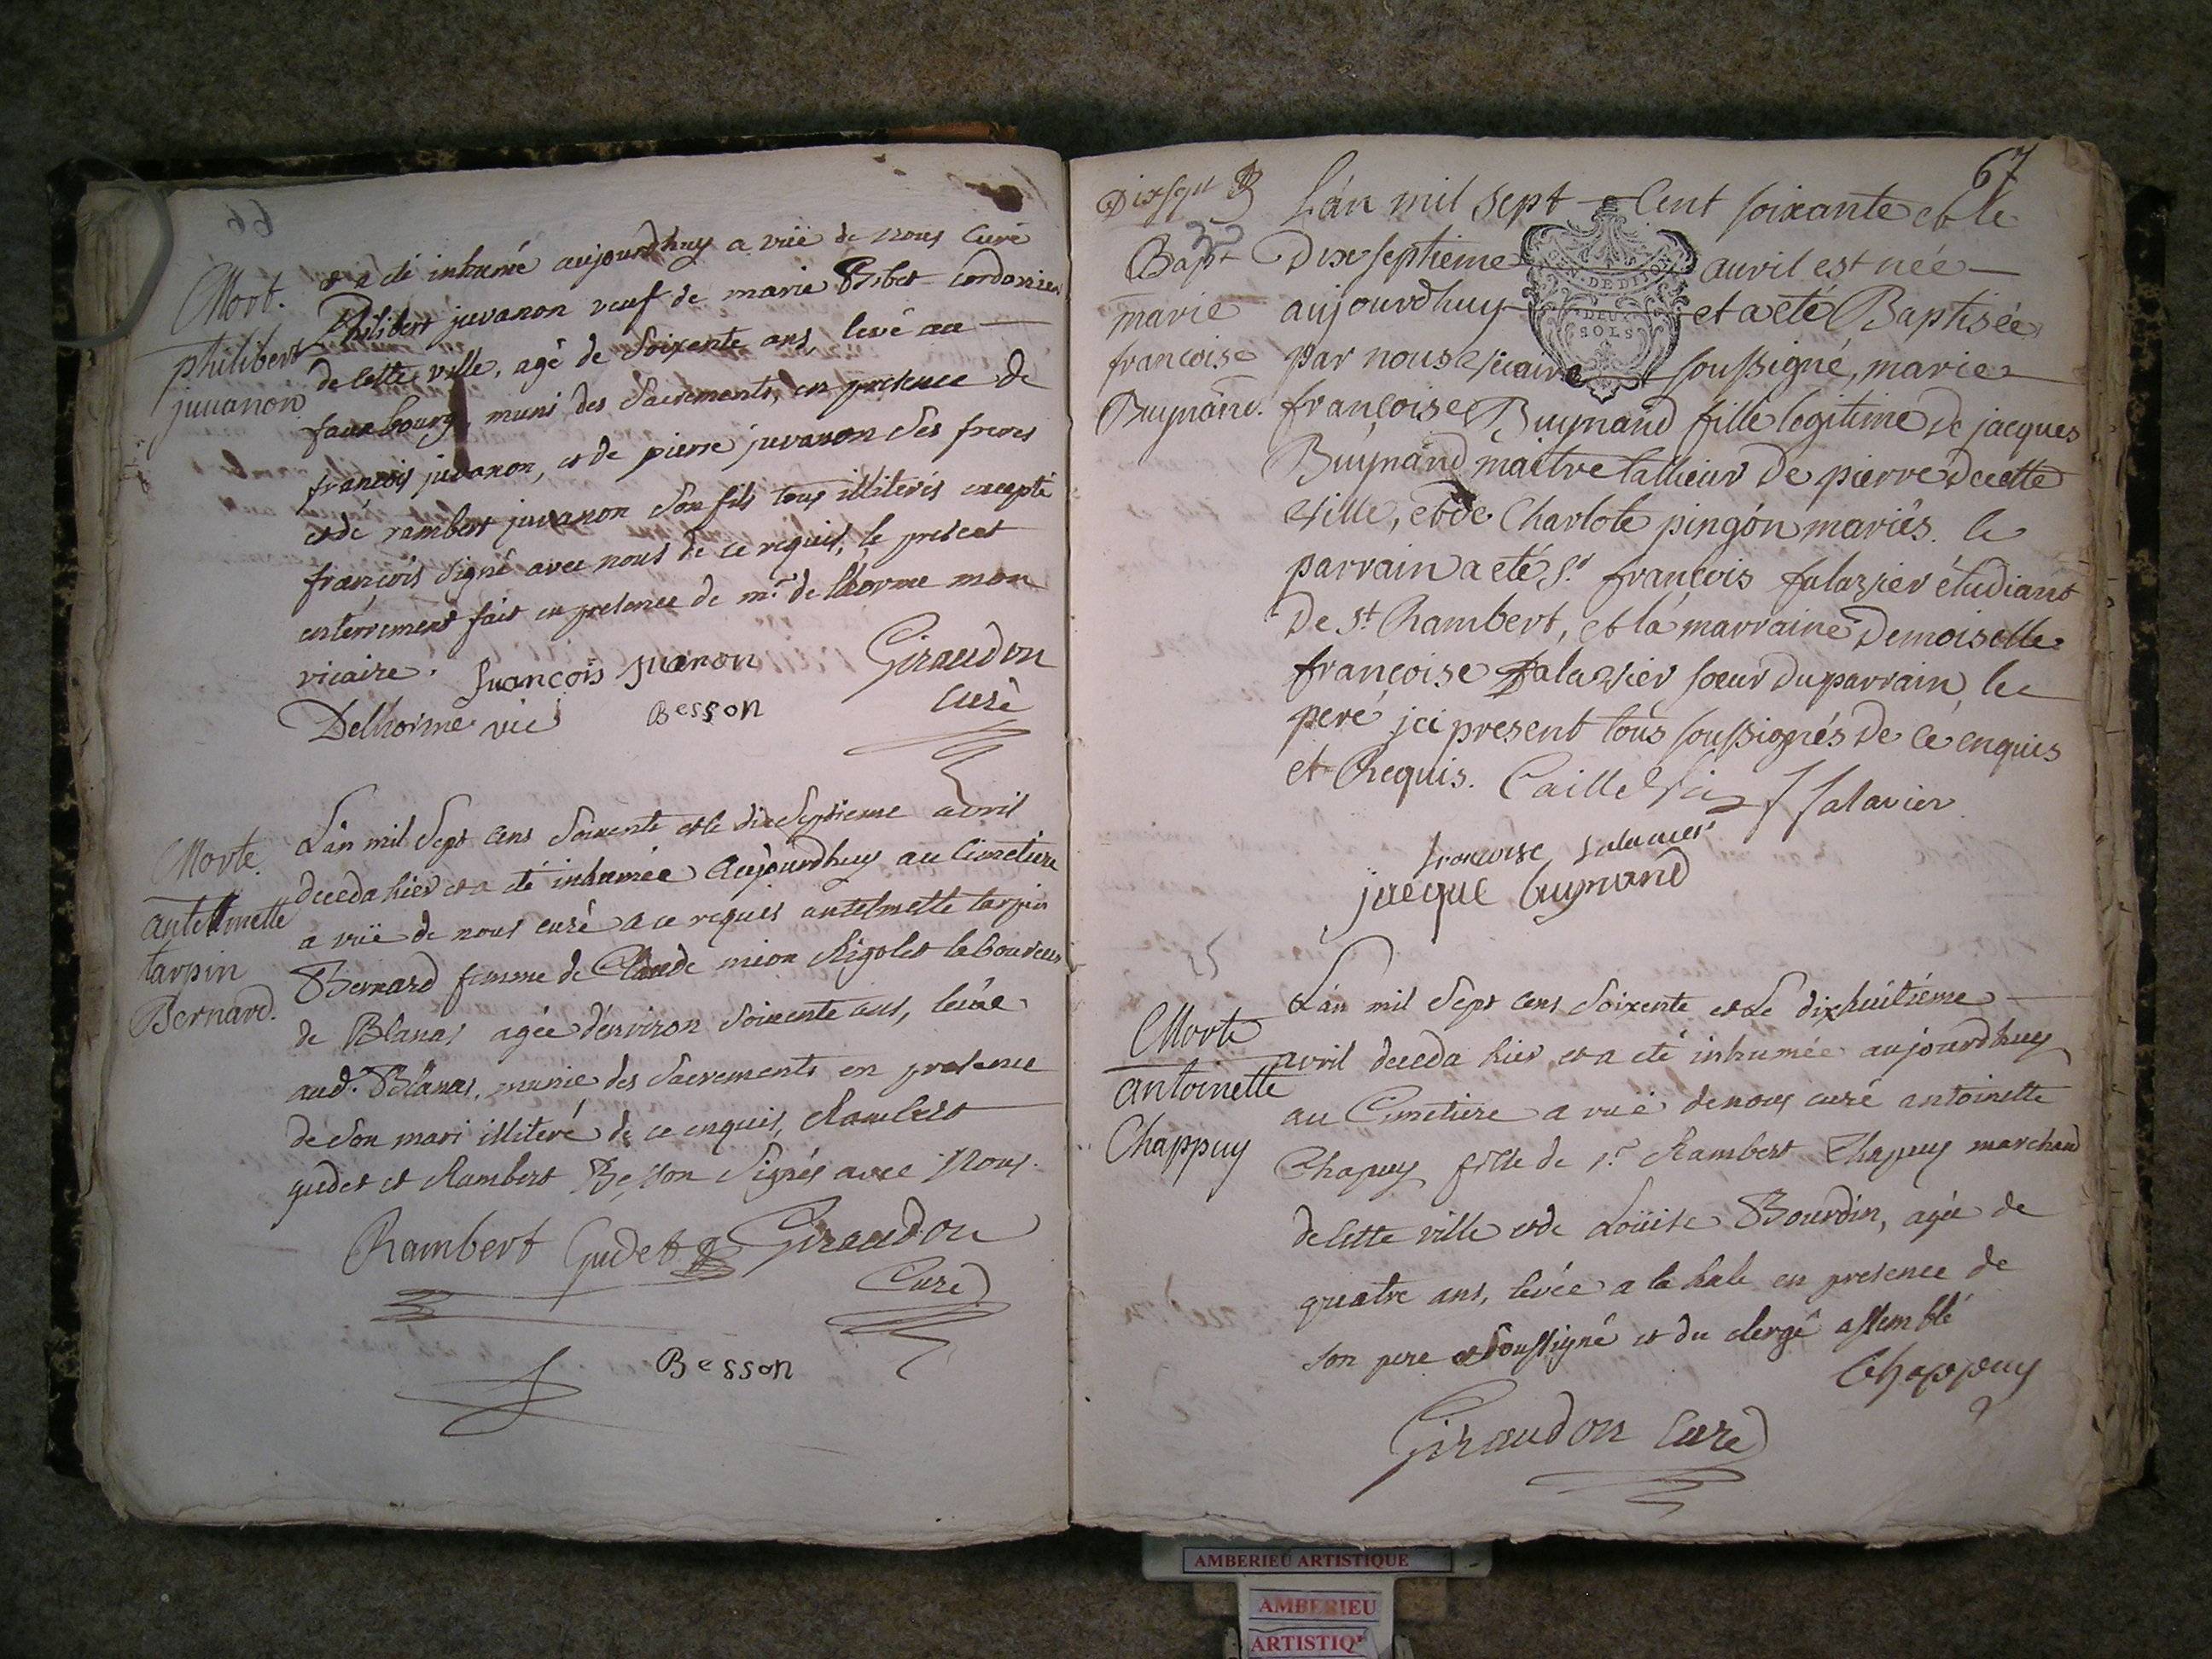 Mort.
philibert
juvanon
et a eté inhumé aujourdhuy a vüe de nous curé
Philibert juvanon veuf de marie Ribet Cordonier
de cette ville, agé de Soixente ans, levé au
fauxbourg, muni des Sacrements, en presence de
francois juvanon, et de pierre juvanon Ses freres
et de rambert juvanon Son fils tous illiterés excepté
françois Signé avec nous de ce requis, le present
enterrement fait en presence de mr. de lhorme mon
vicaire.
françois juanon
Giraudon
curé
Delhorme vic
Besson
Morte.
antelmette
tarpin
Bernard.
L'an mil Sept cens Soixente et le dix Septieme avril
deceda hier et a eté inhumée aujourdhuy au Cimetiere
a vüe de nous curé a ce requis antelmette tarpin
Bernard femme de Claude mion Rigolet laboureur
de Blanas agée d'environ Soixente ans, levée
aud. Blanas, munie des Sacrements en presence
de Son mari illiteré de ce enquis, Rambert
gudet et Rambert Besson Signés avec Nous.
Rambert Gudet
Giraudon
Curé
Besson
67
Bapt
marie
francoise
Buynand.
L'an mil sept Cent soixante et le
Dixseptieme avril est née
aujourdhuy et a eté Baptisée
GEN. DE DIJON
DEUX
SOLS
par nous vicaire soussigné, marie
françoise Buynand fille legitime de jacques
Buynand maitre tallieur de pierre de cette
ville, et de Charlote pingon mariés. le
parrain a eté Sr. françois Salazier étudiant
de St. Rambert, et la marraine Demoiselle
françoise Salazier soeur du parrain, le
pere ici present tous soussignés de ce enquis
et Requis. Caille vic
f Salavier
francoise Salavier
jacque buynand
Morte
antoinette
Chappuy
L'an mil Sept cens Soixente et Le dixhuitieme
avril deceda hier et a eté inhumée aujourdhuy
au Cimetiere a vüe de nous curé antoinette
Chapuy fille de Sr. Rambert Chapuy marchand
de cette ville et de Loüise Bourdin, agée de
quatre ans, levée a la hale en presence de
son pere soussigné et du clergé assemblé
Chappuy
Giraudon Curé
AMBERIEU ARTISTIQUE
AMBERIEU
ARTISTIQ